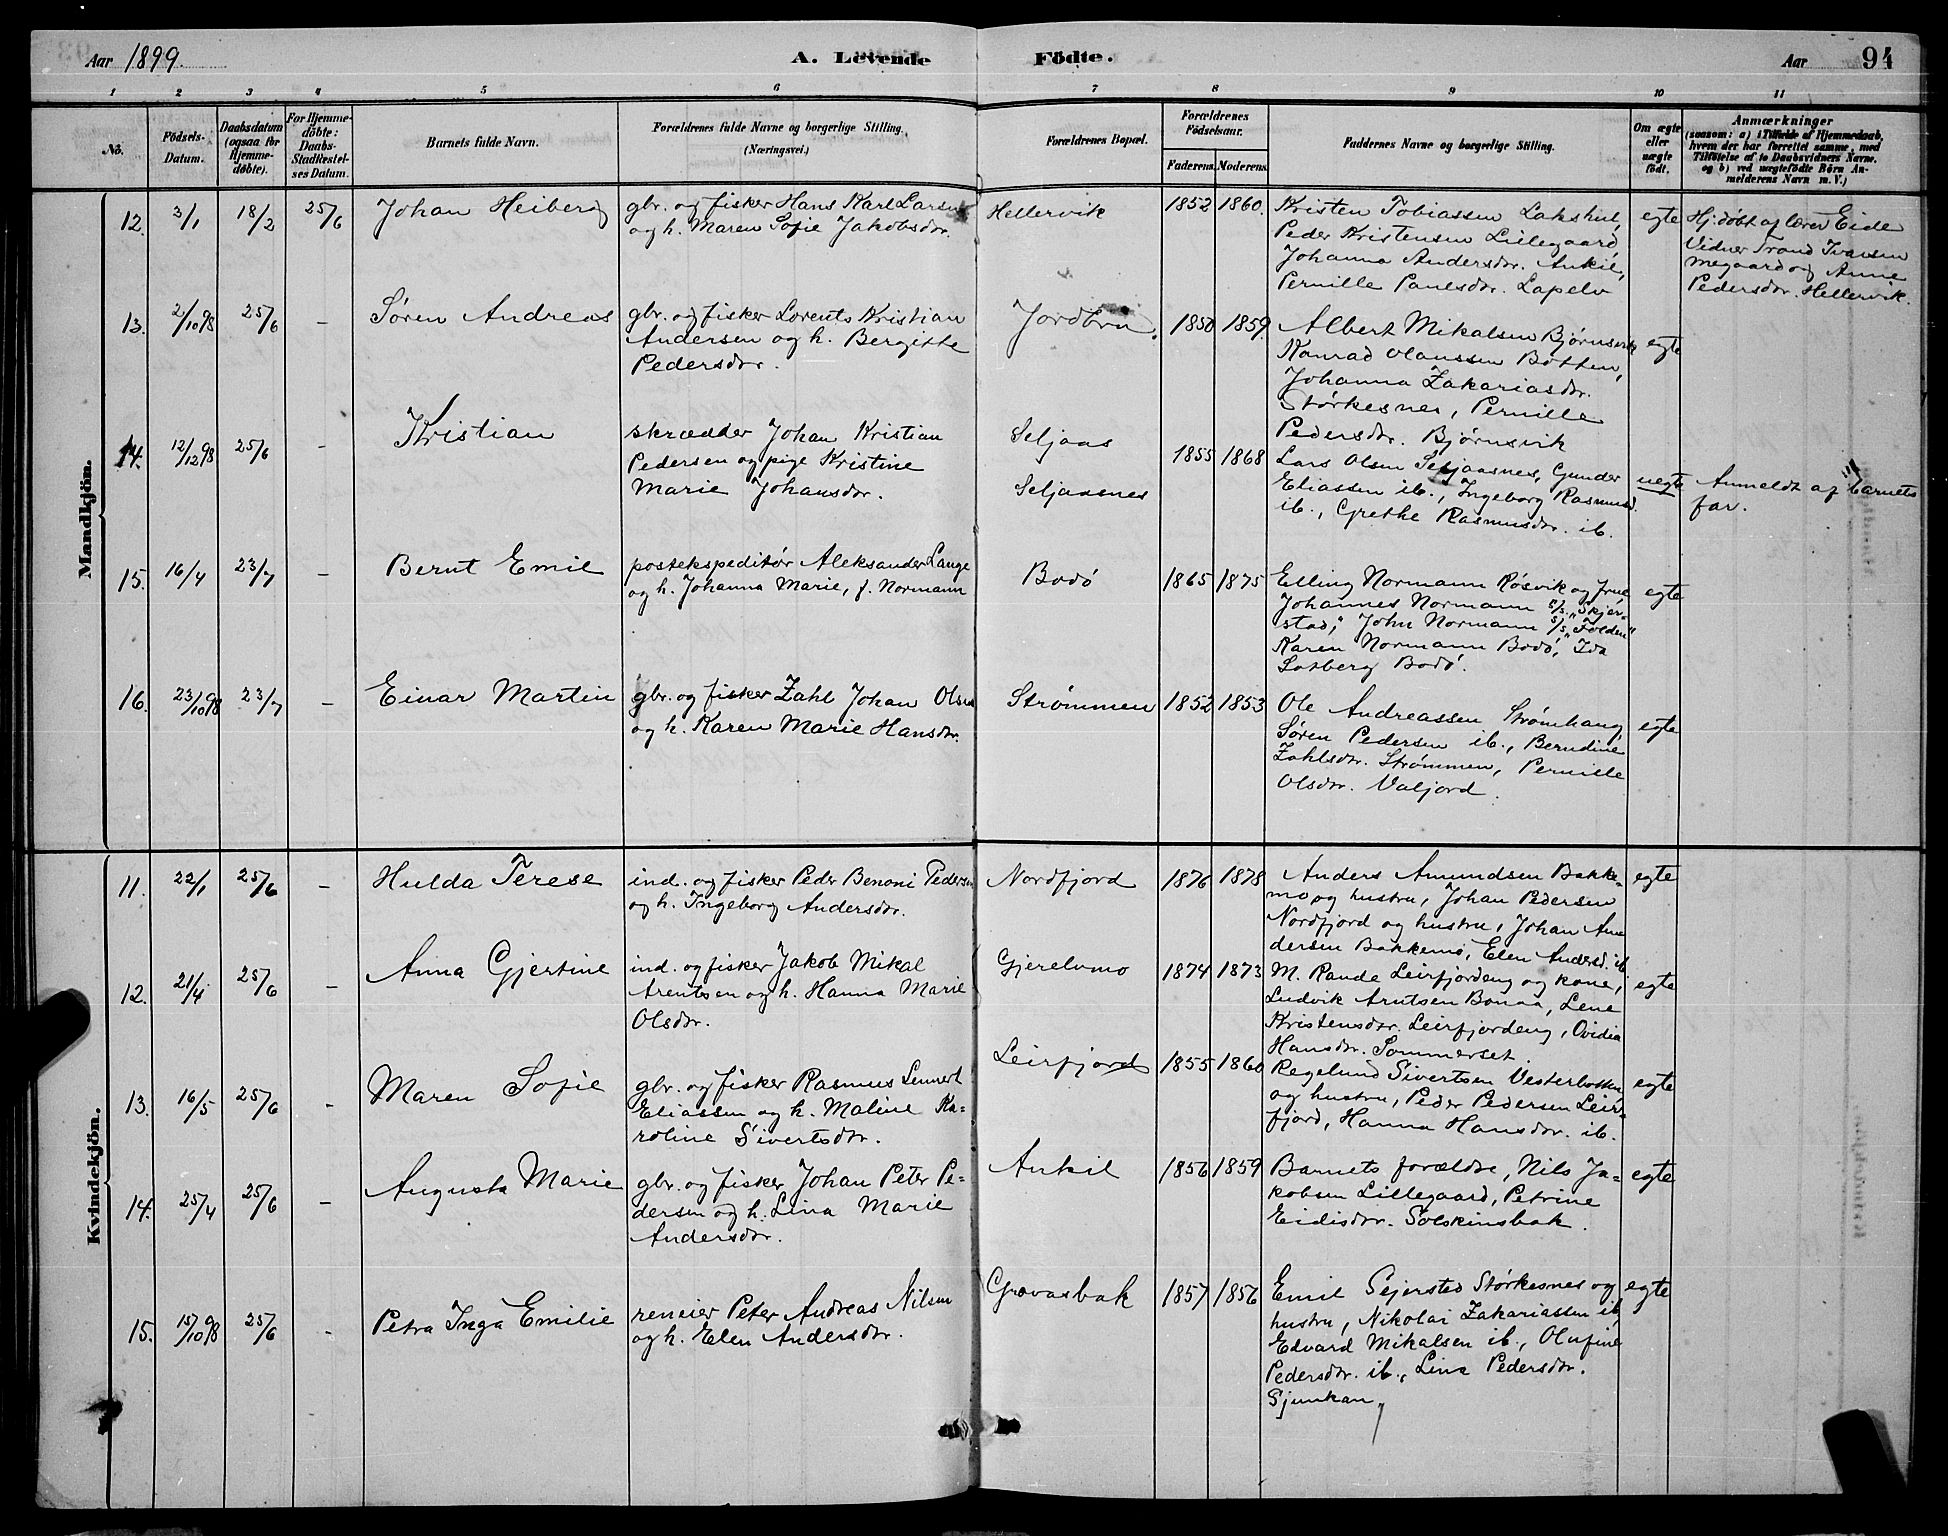 Aar 1899
A. Levende Födte.
Aar 94
1 2 3 4 5 6 7 8 9 10 11
No.
Födsels-Datum.
Daabsdatum (ogsaa for Hjemme-döbte).
For Hjemme-döbte: Daabs-Stadfæstel-ses Datum.
Barnets fulde Navn.
Forældrenes fulde Navne og borgerlige Stilling. (Næringsvei.)
Forældrenes Bopæl.
Forældrenes Födselsaar.
Faderens. Moderens.
Faddernes Navne og borgerlige Stilling.
Om ægte eller uægte födt.
Anmærkninger
(saasom: a) i Tilfælde af Hjemmedaab,
hvem der har forrettet samme, med
Tilföielse af to Daabsvidners Navne,
og b) ved uægtefödte Börn An-
melderens Navn m. V.)
Mandkjön.
12. 3/1 18/2 25/6 Johan Heiberg
gbr. og fisker Hans Karl Larsen
og h. Maren Sofie Jakobsdr.
Hellervik 1852 1860.
Kristen Tobiassen Lakshul,
Peder Kristensen Lillegaard,
Johanna Andersdr. Ankil,
Pernille Paulsdr. Lapelv
egte
Hj.döbt af lærer Eide
Vidner Trond Ivarsen
Megaard og Anne
Pedersdr. Hellervik.
13. 2/10 98 25/6 - Søren Andreas
gbr. og fisker Lorents Kristian
Andersen og h. Bergitte
Pedersdr.
Jordbru. 1850 1859.
Albert Mikalsen Bjørnsvik
Konrad Olaussen Botten,
Johanna Zakariasdr.
Størkesnes, Pernille
Pedersdr. Bjørnsvik
egte
14. 12/12 98 25/6 - Kristian
skrædder Johan Kristian
Pedersen og pige Kristine
Marie Johansdr.
Seljaas
Seljaasnes
1855 1868
Lars Olsen Seljaasnes, Gunder
Eliassen ib., Ingeborg Rasmusd.
ib., Grethe Rasmusdr. ib.
uegte
Anmeldt af barnets
far.
15. 16/4 23/7 - Bernt Emil
postekspeditór Aleksander Lange
og h. Johanna Marie, f. Normann
Bodó 1865 1875
Elling Normann Rósvik og frue
Johannes Normann S/S. "Skjer-
stad," John Normann S/S "Folden"
Karen Normann Bodó, Ida
Bodó.
egte
16. 23/10 98 23/7 - Einar Martin
gbr. og fisker Zahl Johan Olsen
og h. Karen Marie Hansdr.
Strømmen 1852 1853
Ole Andreassen Strømhaug,
Søren Pedersen ib., Berndine
Zahlsdr. Strømmen, Pernille
Olsdr. Valjord.
egte
Kvindekjön.
11. 22/1 25/6 - Hulda Terese
ind. og fisker Peder Benoni Pedersen
og h. Ingeborg Andersdr.
Nordfjord 1876 1878
Anders Amundsen Bakke-
mo og hustru, Johan Pedersen
Nordfjord og hustru, Johan An-
dersen Bakkemo, Elen Andersd. ib.
egte
12. 21/4 25/6 - Anna Gjertine
ind. og fisker Jakob Mikal
Arentsen og h. Hanna Marie
Olsdr.
Gjerelvmo 1874 1873
M. Rande Leirfjordeng og kone,
Ludvik Arntsen Bonaa, Lene
Kristensdr. Leirfjordeng, Ovidia
Hansdr. Sommerset.
egte
13. 16/5 25/6 - Maren Sofie
gbr. og fisker Rasmus Lennert
Eliassen og h. Maline Ka-
roline Sivertsdr.
Leirfjord 1855 1860
Regelund Sivertsen Vesterbotten
og hustru, Peder Pedersen Leir-
fjord, Hanna Hansdr. ib.
egte
14. 25/4 25/6 - Augusta Marie
gbr. og fisker Johan Peter Pe-
dersen og h. Lina Marie
Andersdr.
Ankil 1856 1859
Barnets forældre, Nils Ja-
kobsen Lillegaard, Petrine
Eidisdr. Solskinsbak.
egte
15. 15/10 98 25/6 - Petra Inga Emilie
reneier Peter Andreas Nilsen
og h. Elen Andersdr.
Grovasbak 1857 1856
Emil Sejersted Størkesnes og
hustru, Nikolai Zakariassen ib,
Edvard Mikalsen ib., Olufine
Pedersdr. ib., Lina Pedersdr.
Sjunkan
egte